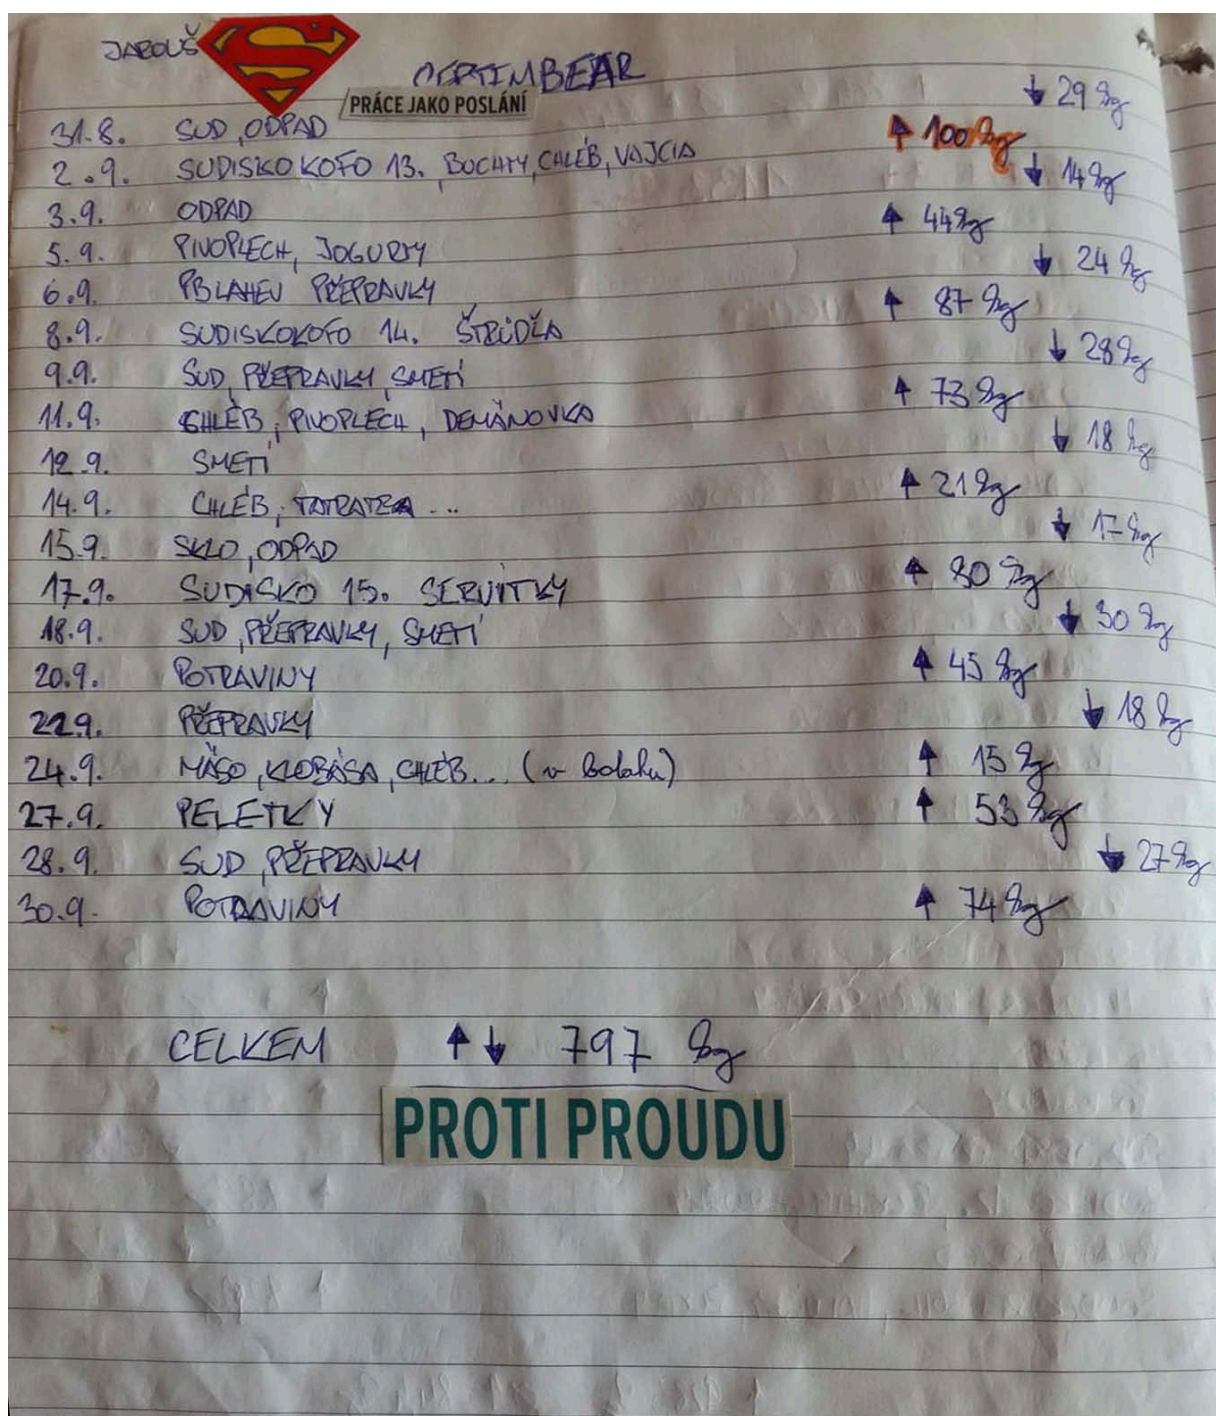 JAROUŠ
PRÁCE JAKO POSLÁNÍ
31.8. SUD, ODPAD ↓ 29 kg
2.9. SUDISKO KOFO 13. BUCHTY, CHLÉB, VAJCIA ↑ 100 kg
3.9. ODPAD ↓ 14 kg
5.9. PIVOPLECH, JOGURTY ↑ 44 kg
6.9. PBLAHEV PŘEPRAVKY ↓ 24 kg
8.9. SUDISKOKOFO 14. ŠTRŮDĹA ↑ 87 kg
9.9. SUD, PŘEPRAVKY, SMETÍ ↓ 28 kg
11.9. CHLÉB, PIVOPLECH, DEMÄNOVKA ↑ 73 kg
12.9. SMETÍ ↓ 18 kg
14.9. CHLÉB, TATRATEA ... ↑ 21 kg
15.9. SKLO, ODPAD ↓ 17 kg
17.9. SUDISKO 15. SERVITKY ↑ 80 kg
18.9. SUD, PŘEPRAVKY, SMETÍ ↓ 30 kg
20.9. POTRAVINY ↑ 45 kg
22.9. PŘEPRAVKY ↓ 18 kg
24.9. MÄSO, KLOBÁSA, CHLÉB... (v bolahu) ↑ 15 kg
27.9. PELETKY ↑ 53 kg
28.9. SUD, PŘEPRAVKY ↓ 27 kg
30.9. POTRAVINY ↑ 74 kg
CELKEM ↑↓ 797 kg
PROTI PROUDU